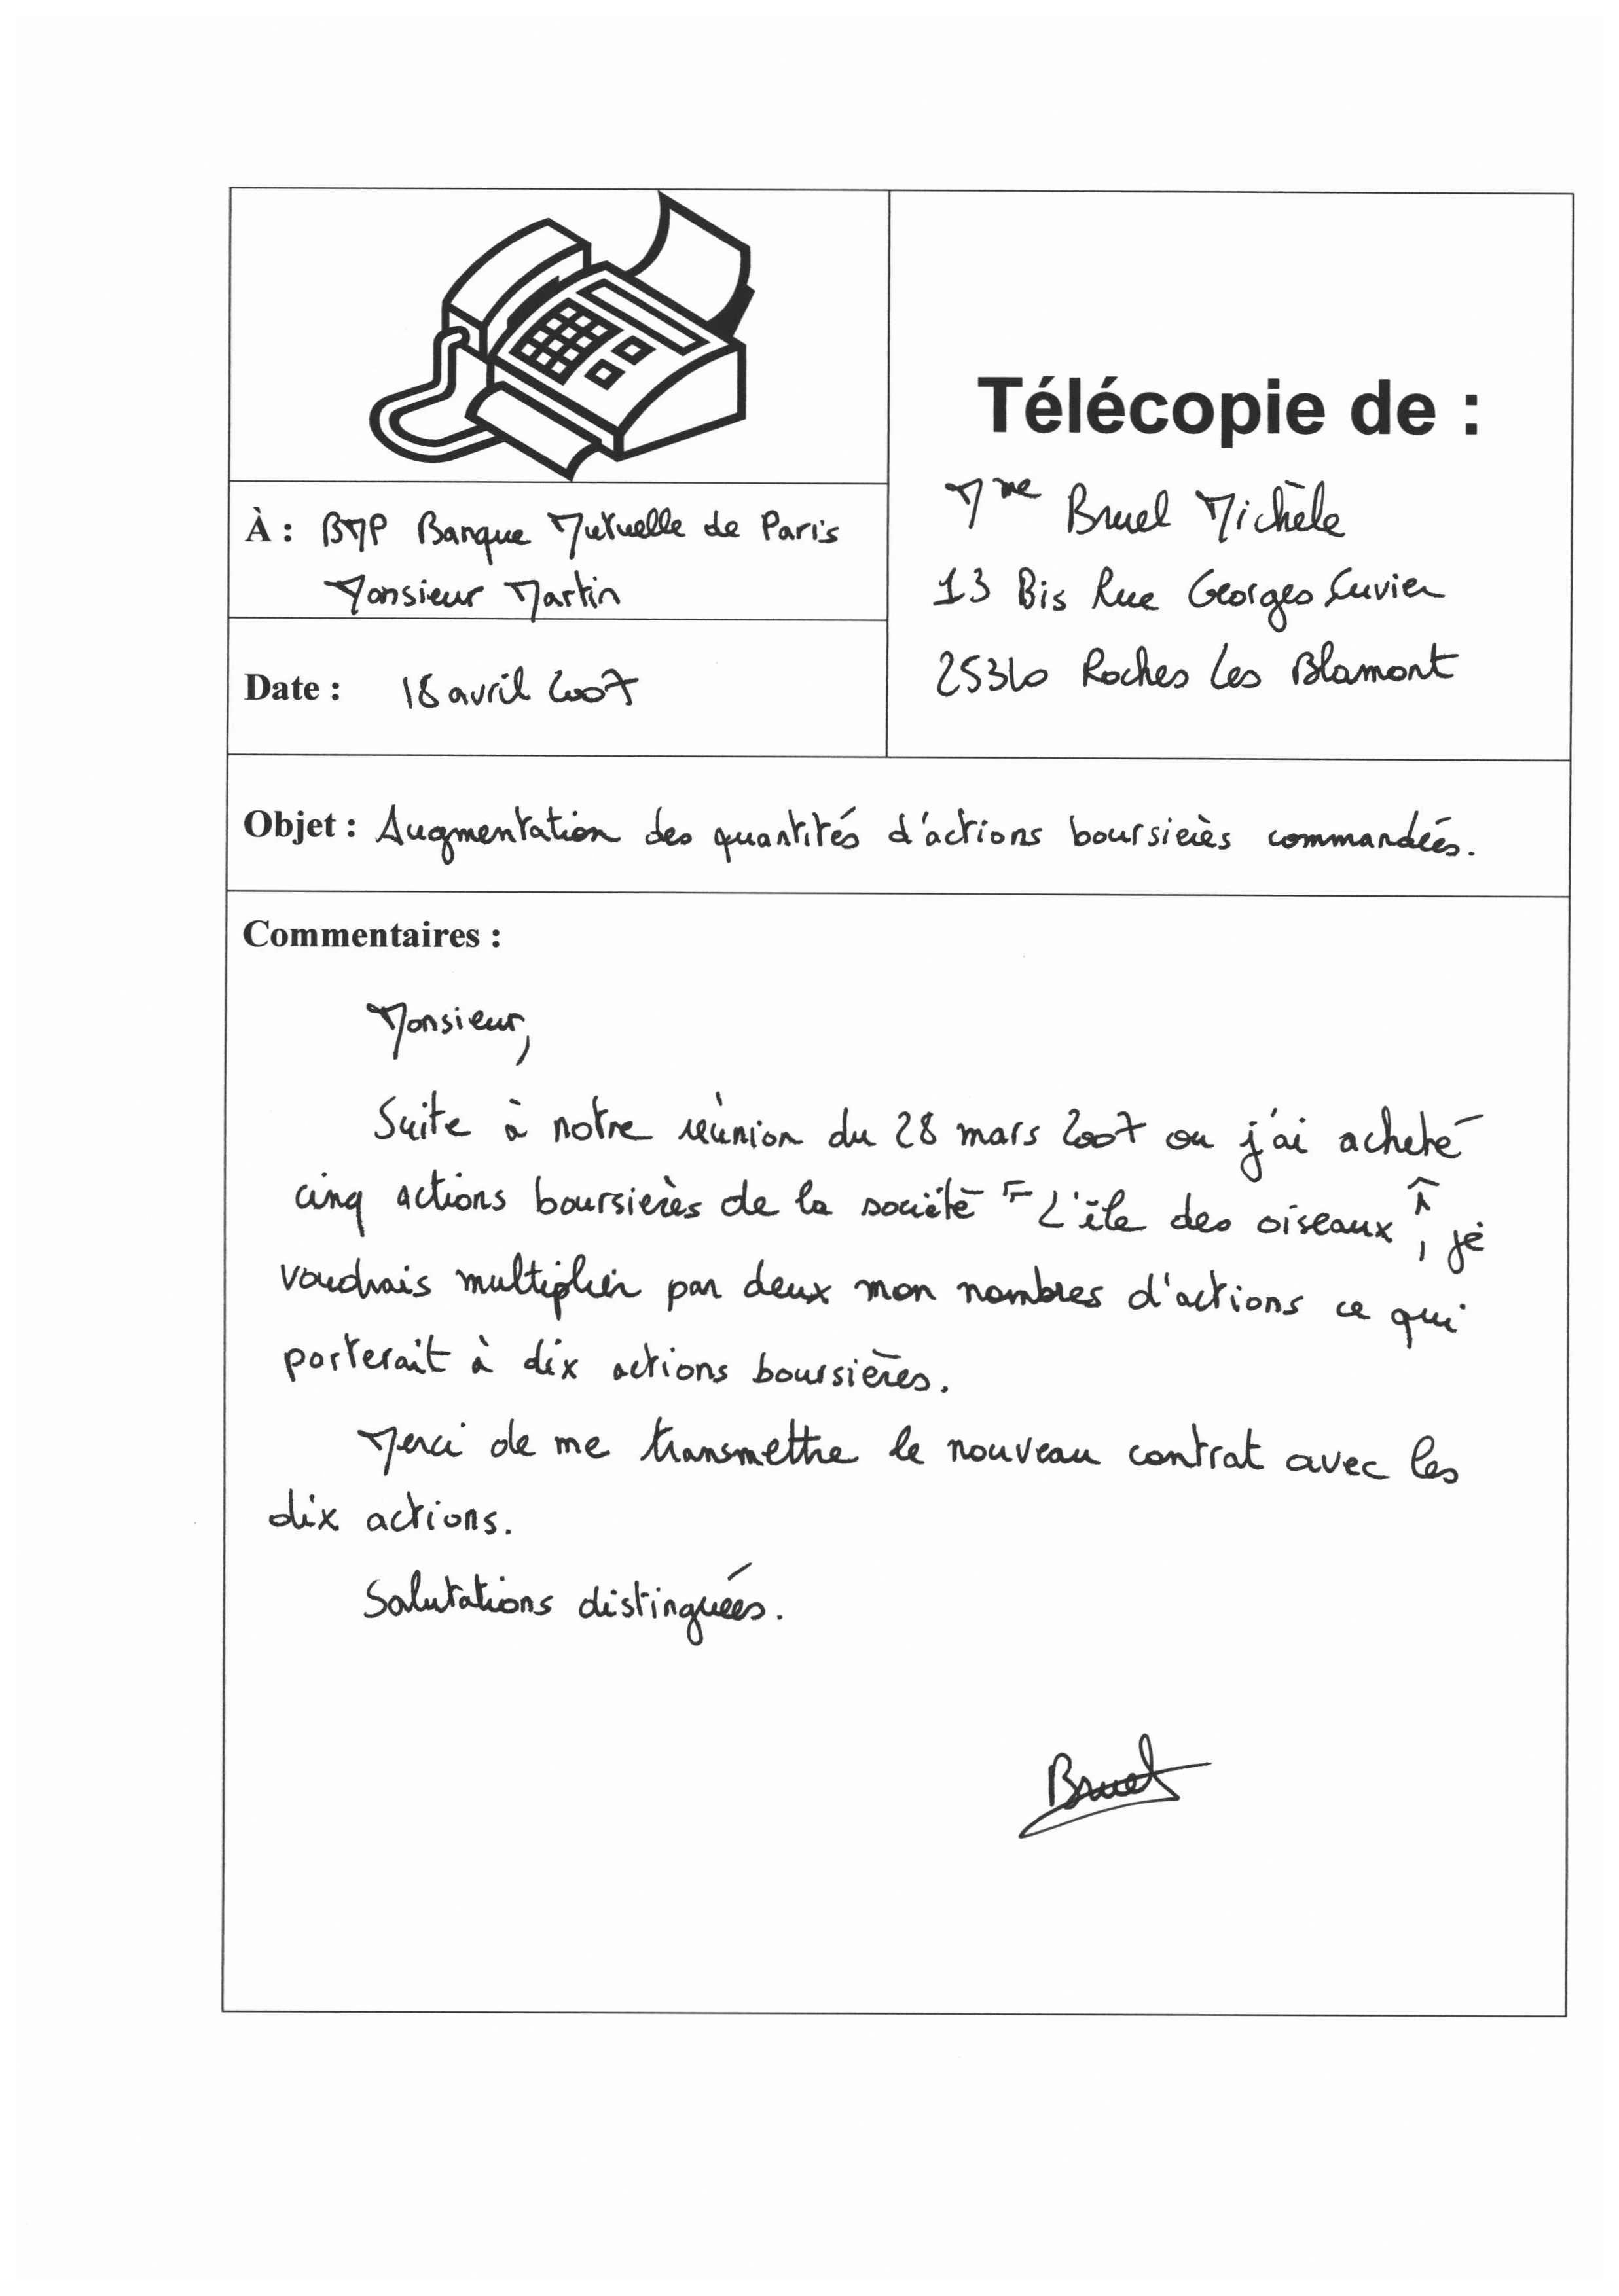 Télécopie de :
Mme Bruel Michèle
13 Bis Rue Georges Cuvier
25310 Roches Les Blamont
À : BMP Banque Mutuelle de Paris
Monsieur Martin
Date : 18 avril 2007
Objet : Augmentation des quantités d'actions boursières commandées.
Commentaires :
Monsieur,
Suite à notre réunion du 28 mars 2007 ou j'ai acheté
cinq actions boursières de la société "L'île des oiseaux", je
voudrais multiplier par deux mon nombres d'actions ce qui
porterait à dix actions boursières.
Merci de me transmettre le nouveau contrat avec les
dix actions.
Salutations distinguées.
Bruel